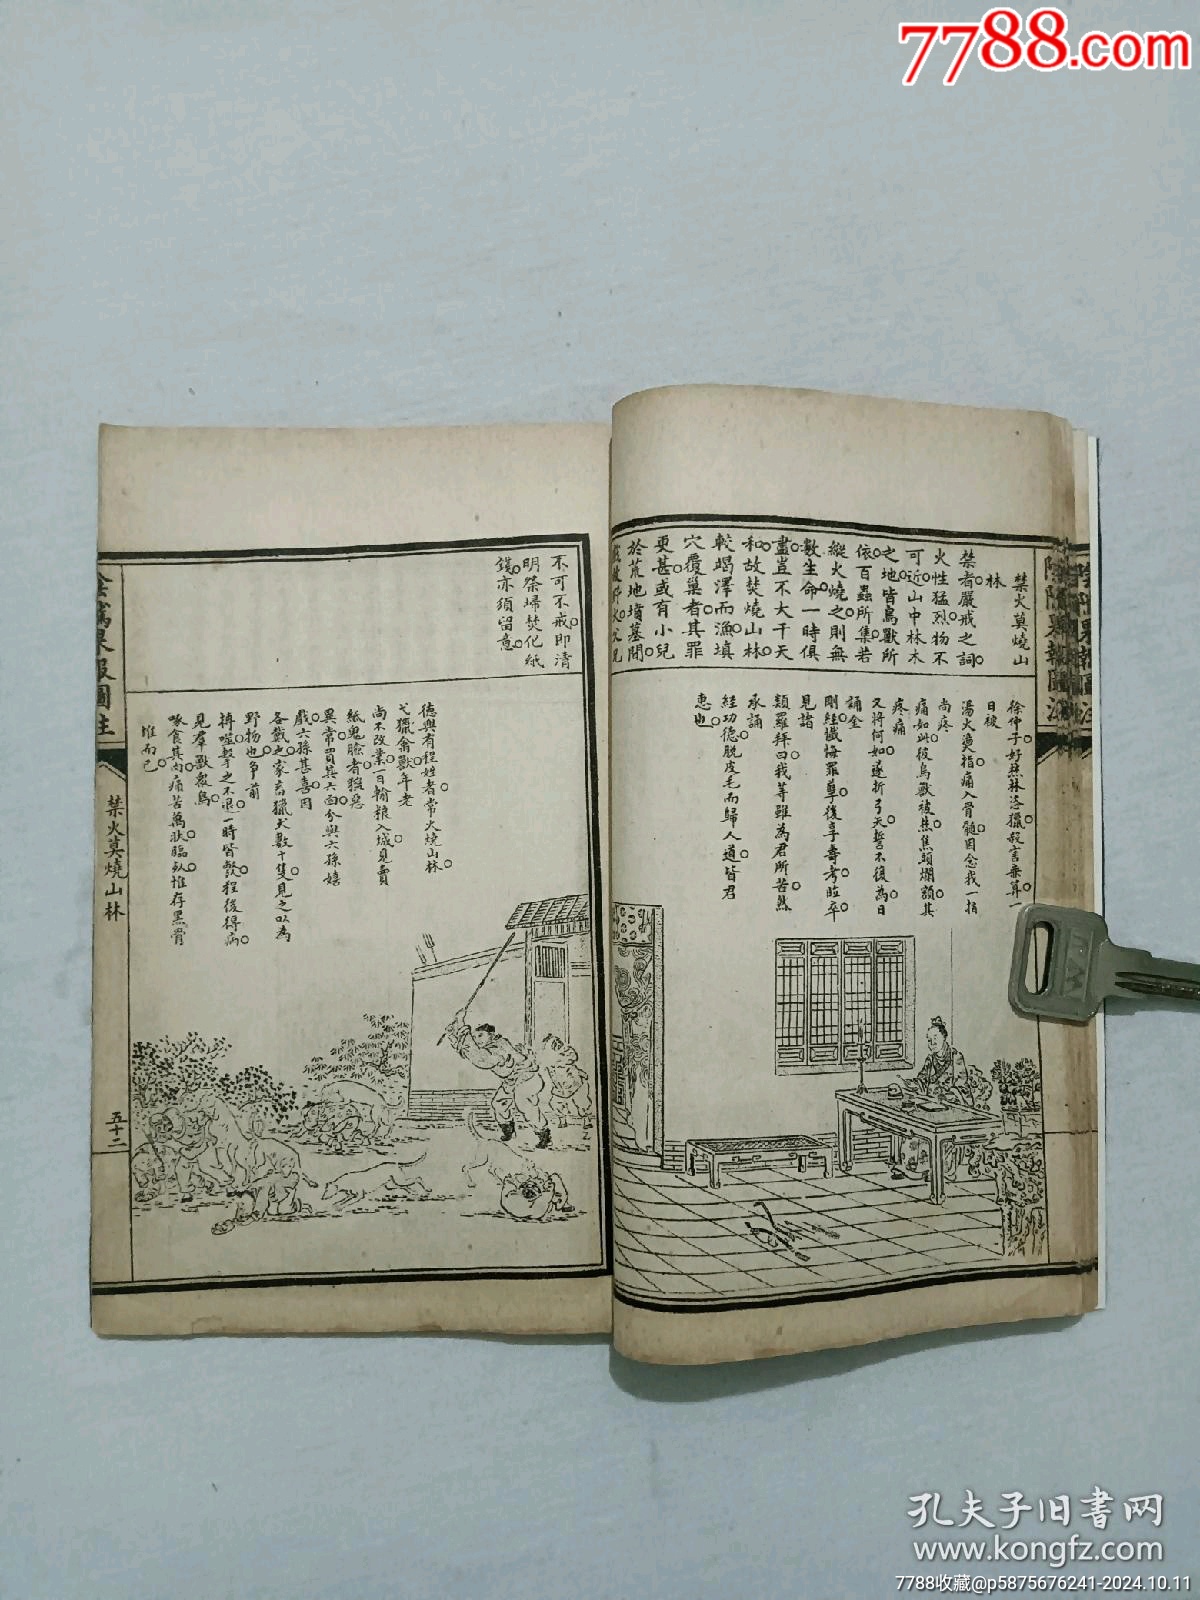 7788.com
禁火莫燒山
林
禁者嚴戒之詞
火性猛烈物不
可近山中林木
之地皆鳥獸所
依百蟲所集若
縱火燒之則無
數生命一時俱
盡豈不大干天
和故焚燒山林
較竭澤而漁填
穴覆巢者其罪
更甚或有小兒
於荒地墳墓間
徐仲子好焚林
日被
湯火漁人指痛入骨髓因念我一指
尚疼
痛如此彼鳥獸被焦頭爛額其
疼痛
又將何如遂折弓矢誓不復為日
誦金
剛經懺悔罪孽後享壽考臨卒
見諸
類羅拜曰我等雖為君所苦然
承誦
經功德脫皮毛而歸人道皆君
惠也
不可不戒即清
明祭埽焚化紙
錢亦須留意
德興有程姓者常火燒山林
弋獵禽獸年老
尚不改業一日輸粮入城見賣
紙鬼臉者猴惡
異常買其六面分與六孫嬉
戲六孫甚喜因
各戴之家畜獵犬數十隻見之以為
野物也爭前
搏噬擊之不退一時皆斃程後得病
見羣獸眾鳥
啄食其肉痛苦萬狀臨臥惟存黑骨
堆而已
陰隲果報圖註
禁火莫燒山林
五十二
孔夫子旧书网
www.kongfz.com
7788收藏@p5875676241-2024.10.11